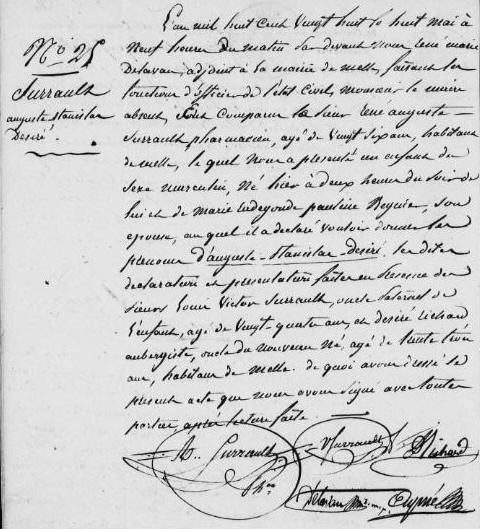 N.o 25
Surrault
auguste stanislas
Désiré.
L'an mil huit cent vingt huit le huit mai à
neuf heures du matin par devant nous rené marie
Delavau, adjoint à la mairie de melle, faisant les
fonctions d'officier de l'état civil, monsieur le maire
absent, est comparu le sieur rené auguste
Surrault pharmacien, agé de vingt six ans, habitant
de melle, le quel nous a présenté un enfant du
sexe masculin, né hier à deux heures du soir de
lui et de marie radegonde pauline Regnier, son
épouse, au quel il a déclaré vouloir donner les
prenoms d'auguste-stanislas-désiré. les dites
declaration et présentation faites en présence des
sieurs Louis Victor Surrault, oncle paternel de
l'enfant, agé de vingt-quatre ans, et désiré
aubergiste, oncle du nouveau né, agé de trente trois
ans, habitans de melle. de quoi avons dressé le
présent acte que nous avons signé avec toutes
parties, après lecture faite.
A. Surrault
Surrault
phien
Delavau